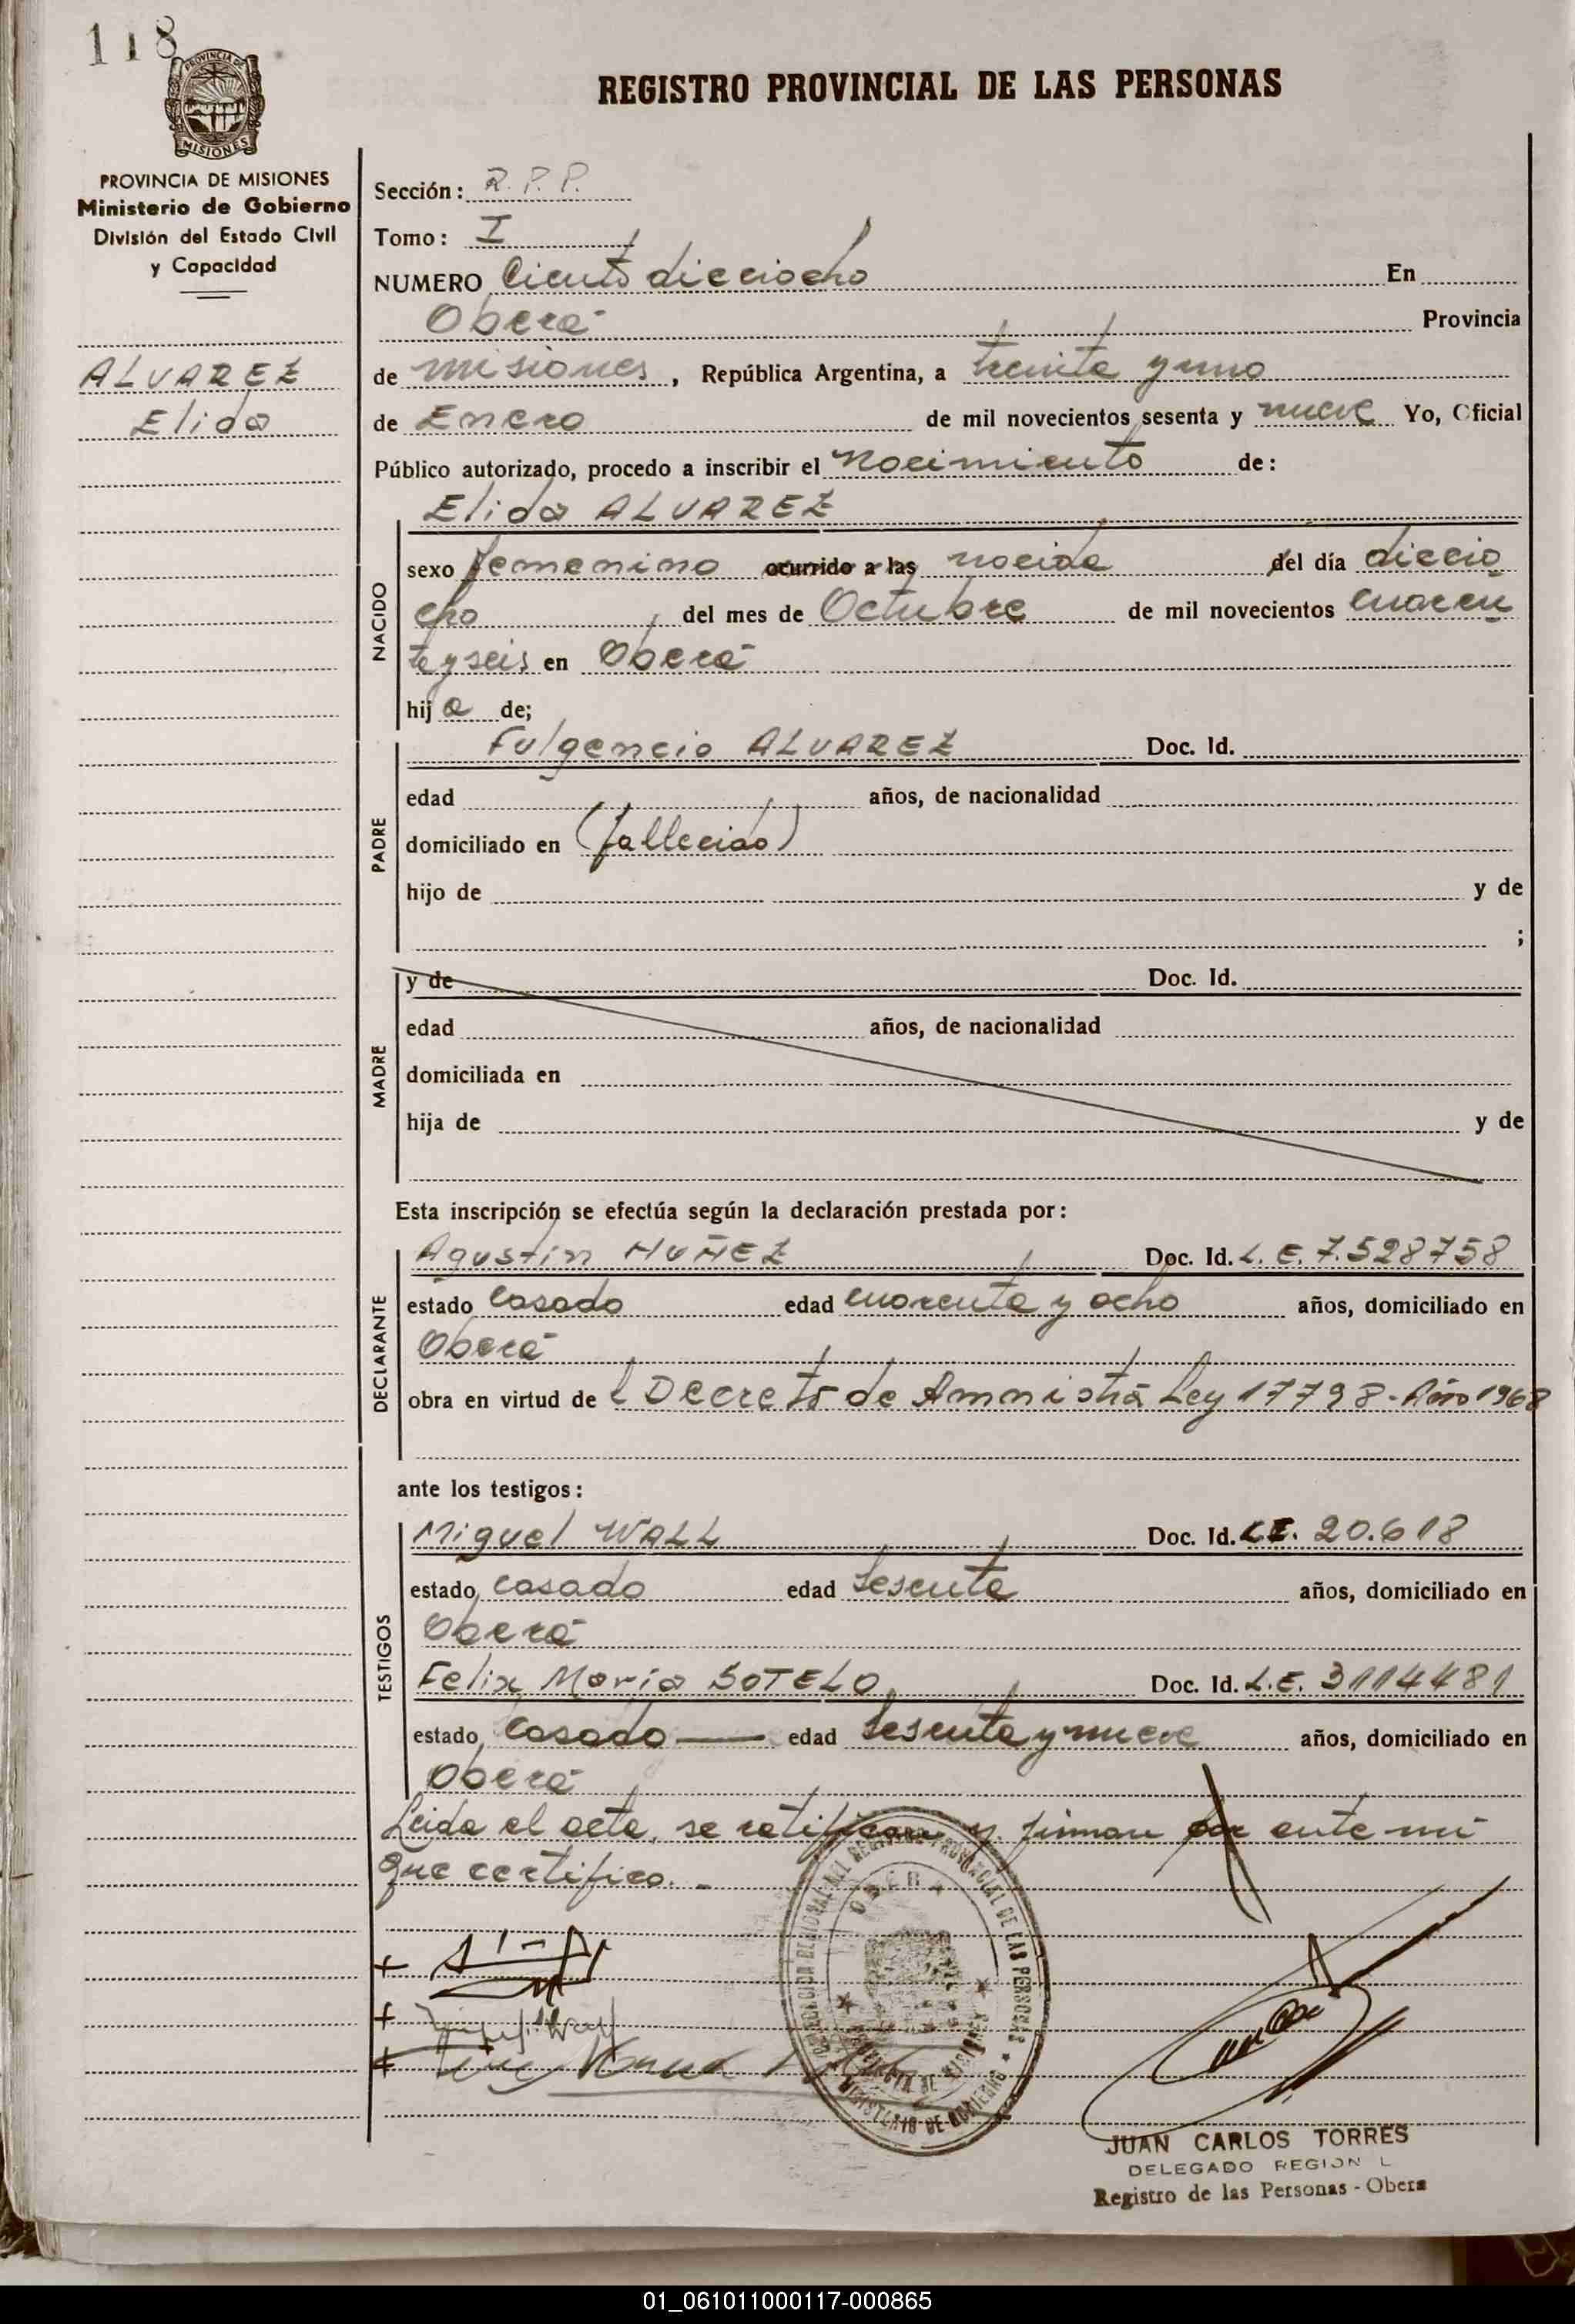 118
PROVINCIA DE
MISIONES
REGISTRO PROVINCIAL DE LAS PERSONAS
PROVINCIA DE MISIONES
Ministerio de Gobierno
División del Estado Civil
y Capacidad
ALVAREZ
Elida
Sección: R. P. P.
Tomo: I
NUMERO Ciento dieciocho En
Oberá Provincia
de misiones, República Argentina, a treinta y uno
de Enero de mil novecientos sesenta y nueve Yo, Oficial
Público autorizado, procedo a inscribir el Nacimiento de:
Elida ALVAREZ
NACIDO
sexo femenino ocurrido a las nacida del día diecio
cho, del mes de Octubre de mil novecientos cuaren
ta y seis en Oberá
hija de;
PADRE
Fulgencio ALVAREZ Doc. Id.
edad años, de nacionalidad
domiciliado en (fallecido)
hijo de y de
;
MADRE
y de Doc. Id.
edad años, de nacionalidad
domiciliada en
hija de y de
Esta inscripción se efectúa según la declaración prestada por:
DECLARANTE
Agustín NUÑEZ Doc. Id. L. E. 7.528758
estado Casado edad cuarenta y ocho años, domiciliado en
Oberá
obra en virtud de l Decreto de Amnistia Ley 17798-Año 1968
ante los testigos:
TESTIGOS
Miguel WALL Doc. Id. CI. 20.618
estado casado edad Sesenta años, domiciliado en
Oberá
Felix Maria SOTELO Doc. Id. L.E. 3114481
estado, Casado edad Sesenta y nueve años, domiciliado en
Oberá
Leida el acta, se ratifican y firman por ante mi
que certifico. -
DEL REGISTRO PROVINCIAL DE LAS PERSONAS
OBERA
MINISTERIO DE GOBIERNO
JUAN CARLOS TORRES
DELEGADO REGION L
Registro de las Personas - Obera
01_061011000117-000865